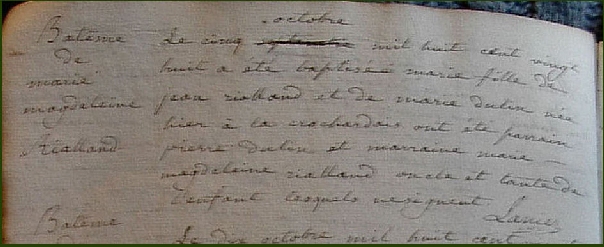 octobre
Batême
de
marie
magdeleine
Rialland
Le cinq septembre mil huit cent vingt
huit a été baptisée marie fille de
jean rialland et de marie dutin née
hier à la crochardais ont été parrain
pierre dutin et marraine marie
magdeleine rialland oncle et tante de
l'enfant lesquels ne signent
Batême
Le dix octobre mil huit cent